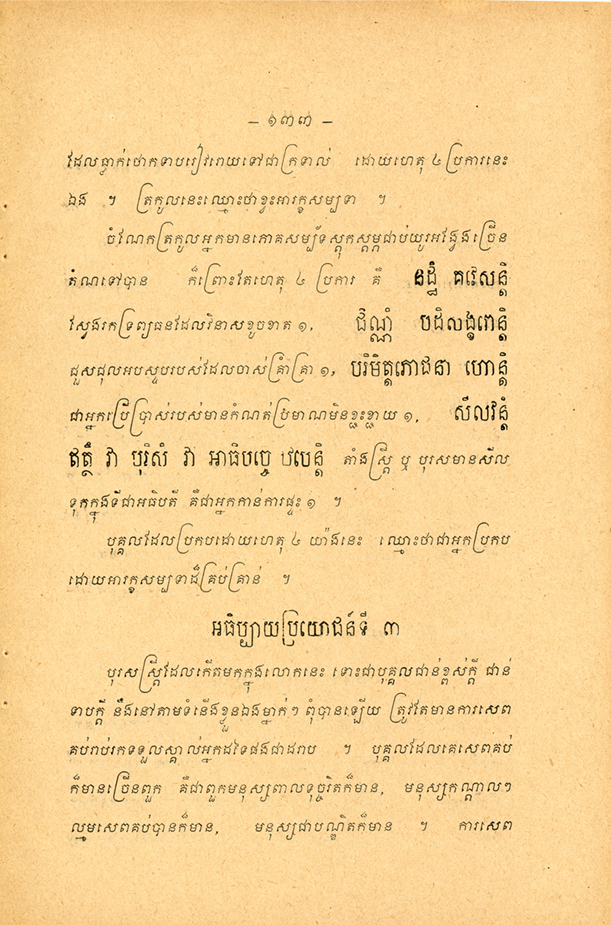 – ១៣៣ –
ដែលធ្លាក់ថោកទាបរៀវរោយទៅជាក្រទាល់ ដោយហេតុ ៤ ប្រការនេះ
ឯង ។ ត្រកូលនេះឈ្មោះថាខ្វះអារក្ខសម្បទា ។
ចំណែកត្រកូលអ្នកមានភោគសម្ប័ទស្តុកស្តម្ភជាប់យូរអង្វែងច្រើន
តំណទៅបាន ក៏ព្រោះតែហេតុ ៤ ប្រការ គឺ នដ្ឋំ គវេសន្តិ
ស្វែងរកទ្រព្យធនដែលវិនាសខូចខាត ១, ជិណ្ណំ បដិសង្ខរោន្តិ
ជួសជុលអបស្ទបរបស់ដែលចាស់គ្រាំគ្រា ១, បរិមិត្តភោជនា ហោន្តិ
ជាអ្នកប្រើប្រាស់របស់មានកំណត់ប្រមាណមិនខ្ជះខ្ជាយ ១, សីលវន្តំ
ឥត្ថឹ វា បុរិសំ វា អាធិបច្ចេ ឋបេន្តិ តាំងស្ត្រី ឬ បុរសមានសីល
ទុកក្នុងទីជាអធិបតី គឺជាអ្នកកាន់ការផ្ទះ ១ ។
បុគ្គលដែលប្រកបដោយហេតុ ៤ យ៉ាងនេះ ឈ្មោះថាជាអ្នកប្រកប
ដោយអារក្ខសម្បទាដ៏គ្រប់គ្រាន់ ។
អធិប្បាយប្រយោជន៍ទី ៣
បុរសស្ត្រីដែលកើតមកក្នុងលោកនេះ ទោះជាបុគ្គលជាន់ខ្ពស់ក្តី ជាន់
ទាបក្តី នឹងនៅតាមទំនើងខ្លួនឯងម្នាក់ៗ ពុំបានឡើយ ត្រូវតែមានការសេព
គប់រាប់រកទទួលស្គាល់អ្នកដទៃផងជាដរាប ។ បុគ្គលដែលគេសេពគប់
ក៏មានច្រើនពួក គឺជាពួកមនុស្សពាលទុច្ចរិតក៏មាន, មនុស្សកណ្តាលៗ
ល្មមសេពគប់បានក៏មាន, មនុស្សជាបណ្ឌិតក៏មាន ។ ការសេព